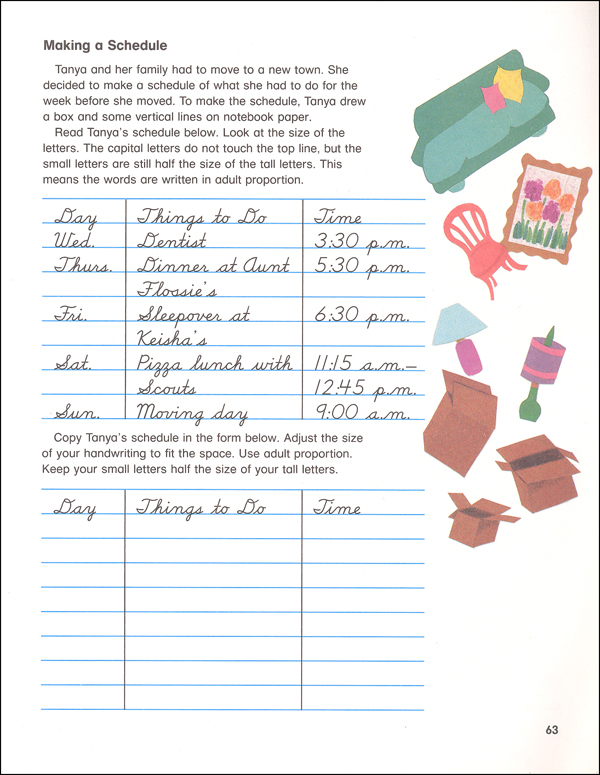 Making a Schedule
Tanya and her family had to move to a new town. She
decided to make a schedule of what she had to do for the
week before she moved. To make the schedule, Tanya drew
a box and some vertical lines on notebook paper.
Read Tanya's schedule below. Look at the size of the
letters. The capital letters do not touch the top line, but the
small letters are still half the size of the tall letters. This
means the words are written in adult proportion.
Day Things to Do Time
Wed. Dentist 3:30 p.m.
Thurs. Dinner at Aunt 5:30 p.m.
Flossie's
Fri. Sleepover at 6:30 p.m.
Keisha's
Sat. Pizza lunch with 11:15 a.m.–
Scouts 12:45 p.m.
Sun. Moving day 9:00 a.m.
Copy Tanya's schedule in the form below. Adjust the size
of your handwriting to fit the space. Use adult proportion.
Keep your small letters half the size of your tall letters.
Day Things to Do Time
63